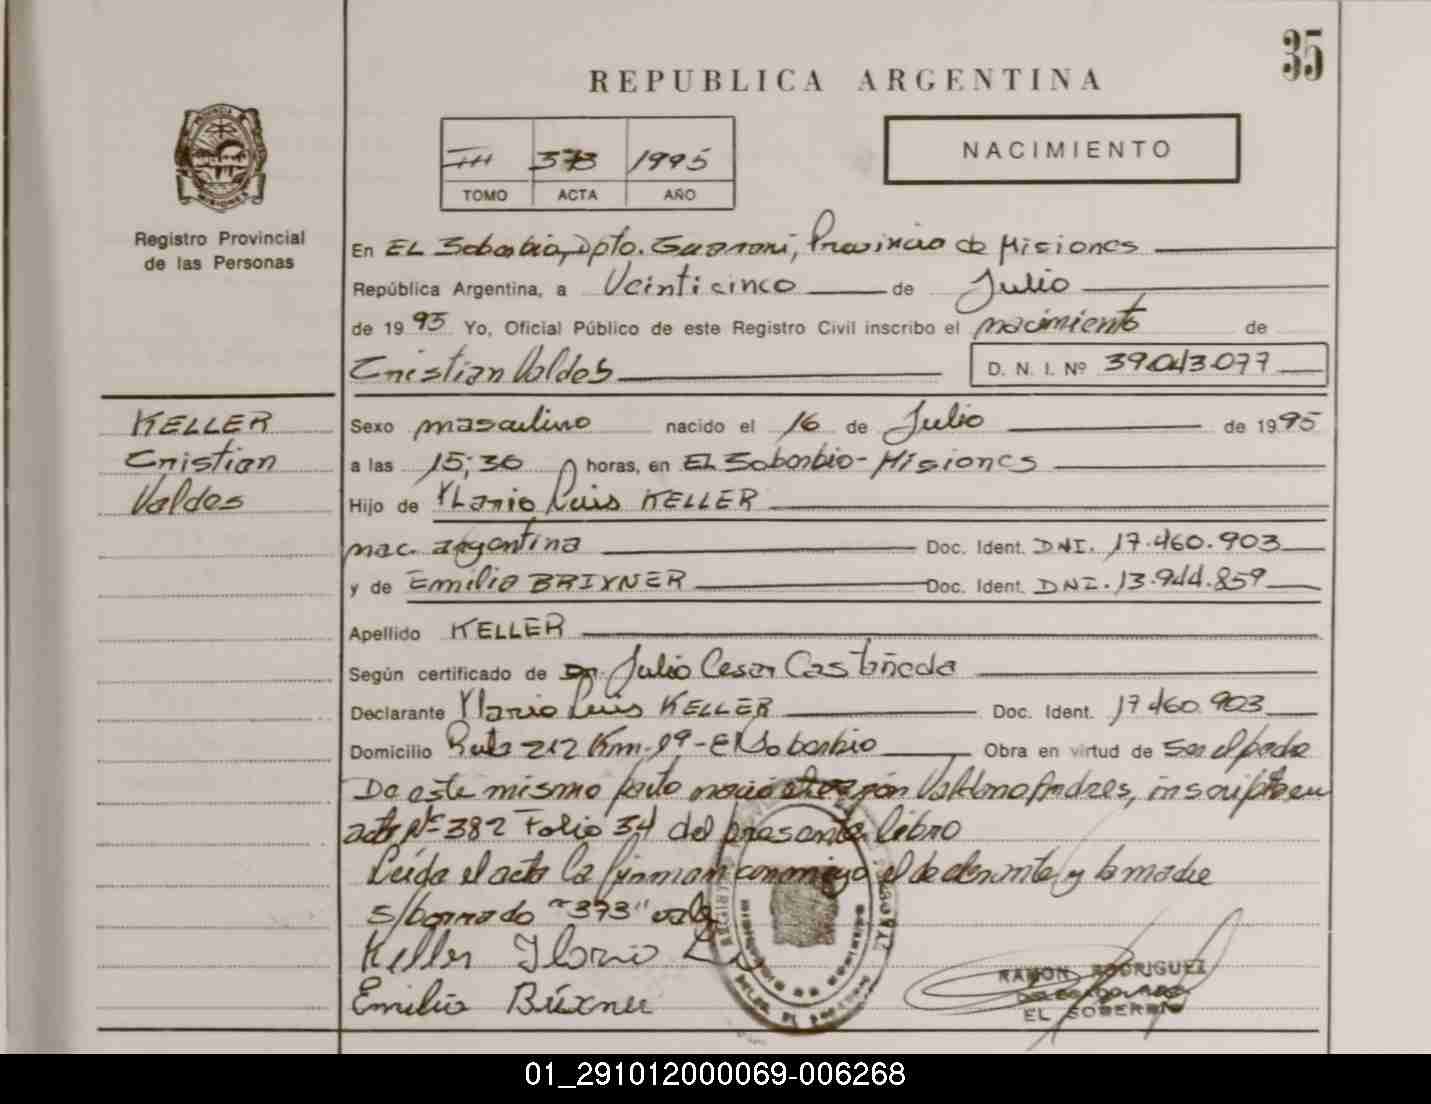 35
REPUBLICA ARGENTINA
III 373 1995
TOMO ACTA AÑO
NACIMIENTO
PROVINCIA DE
MISIONES
Registro Provincial
de las Personas
En EL Soberbio, Dpto. Guarani, Provincia de Misiones
República Argentina, a Veinticinco de Julio
de 1995 Yo, Oficial Público de este Registro Civil inscribo el nacimiento de
Cristian Valdes
D. N. I. Nº 39.043.077
KELLER
Cristian
Valdes
Sexo masculino nacido el 16 de Julio de 1995
a las 15;30 horas, en EL Soberbio - Misiones
Hijo de Ilario Luis KELLER
nac. argentina Doc. Ident. DNI. 17.460.903
y de Emilia BRIXNER Doc. Ident. DNI. 13.944.859
Apellido KELLER
Según certificado de Dr. Julio Cesar Castañeda
Declarante Ilario Luis KELLER Doc. Ident. 17.460.903
Domicilio Ruta 212 Km-19-El Soberbio Obra en virtud de Ser el padre
De este mismo parto nació el varón Andres, inscripto en
acta Nº 382 Folio 34 del presente libro
Leida el acta la firman conmigo el declarante y la madre
s/borrado "373" vale
Keller Ilario
Emilia Brixner
RAMON RODRIGUEZ
EL SOBERBIO
01_291012000069-006268